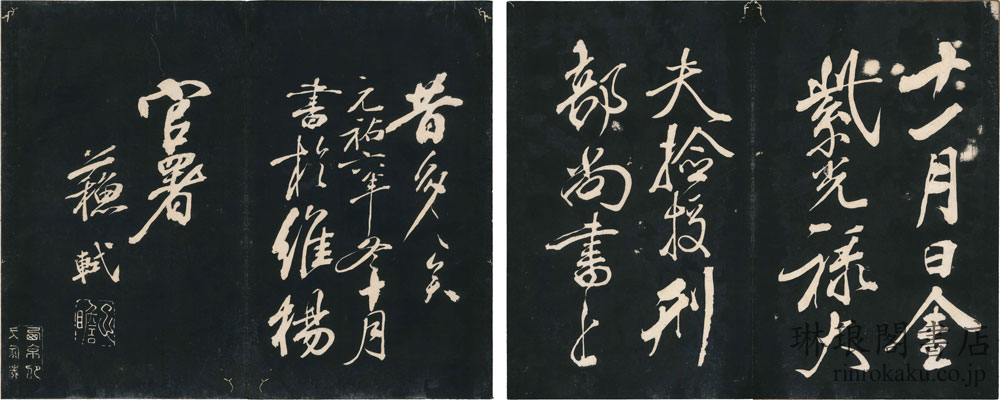 十一月日金
紫光祿大
夫撿挍刑
部尚書上
昔多〻矣
元祐六年冬十月
書於維楊
官署
蘇軾
琳琅閣書店
rinrokaku.co.jp